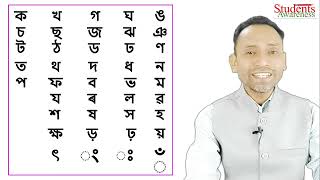 Students
Awareness
ক খ গ ঘ ঙ
চ ছ জ ঝ ঞ
ট ঠ ড ঢ ণ
ত থ দ ধ ন
প ফ ব ভ ম
য ৰ ল ৱ
শ ষ স হ
ক্ষ ড় ঢ় য়
ৎ ং ঃ ঁ